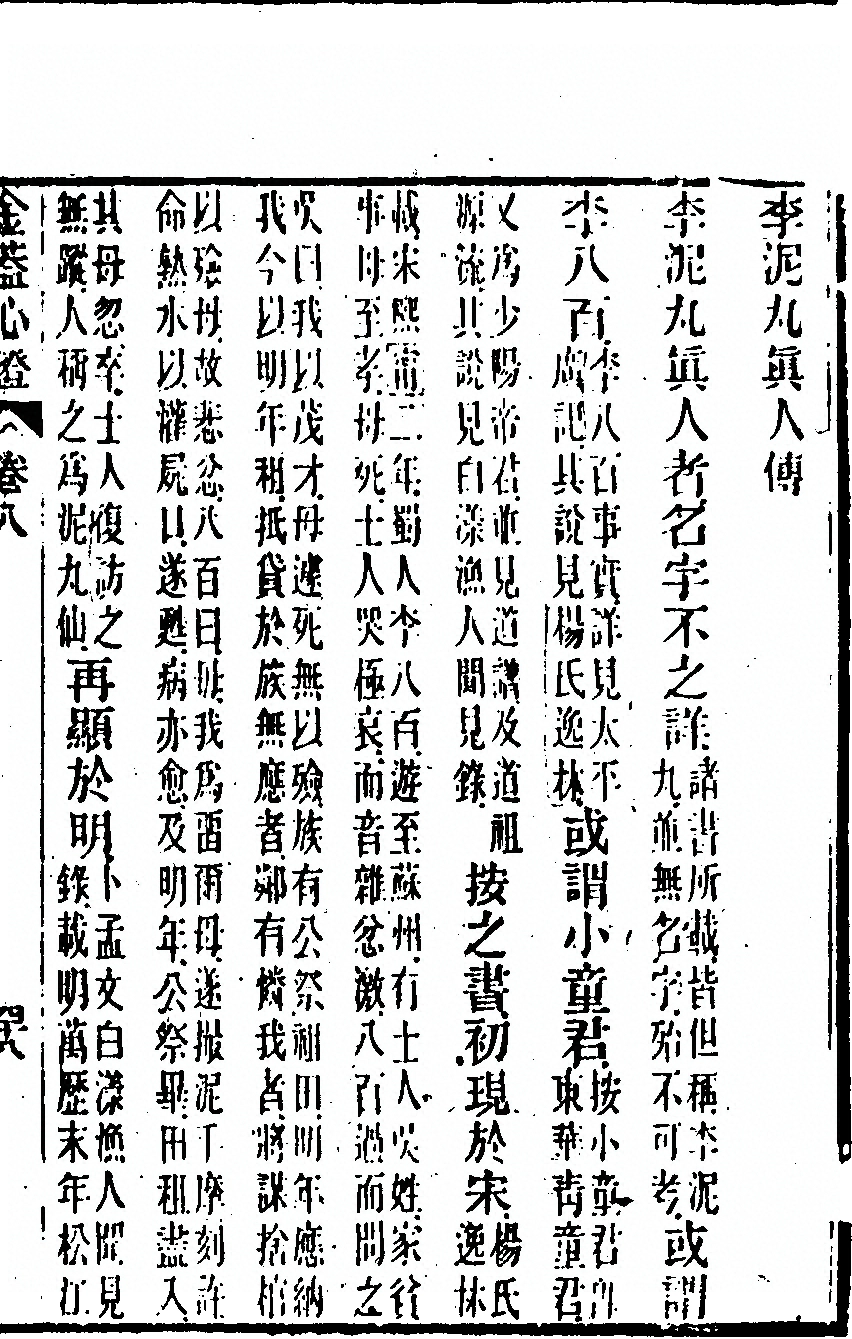 李泥丸眞人傳
李泥丸眞人者名字不之詳諸書所載皆但稱李泥丸並無名字殆不可考或謂
李八百李八百事實詳見太平廣記其說見楊氏逸林或謂小童君按小童君卽東華靑童君
又爲少陽帝君並見道譜及道祖源流其說見白溪漁人聞見錄按之書初現於宋楊氏逸林
載宋熙甯二年蜀人李八百遊至蘇州有士人吳姓家貧事母至孝母死士人哭極哀而音雜忿激八百過而問之
吳曰我以茂才母遽死無以殮族有公祭祖田明年應納我今以明年租抵貸於族無應者鄰有憐我者將謀捨棺
以殮母故悲忿八百曰止我爲畱爾母遂撮泥丁摩刻許命熱水以灌屍口遂甦病亦愈及明年公祭畢田租盡入
其母忽卒士人復訪之無蹤人稱之爲泥丸仙再顯於明卜孟文白溪漁人聞見錄載明萬歷末年松江
金蓋心燈 卷八